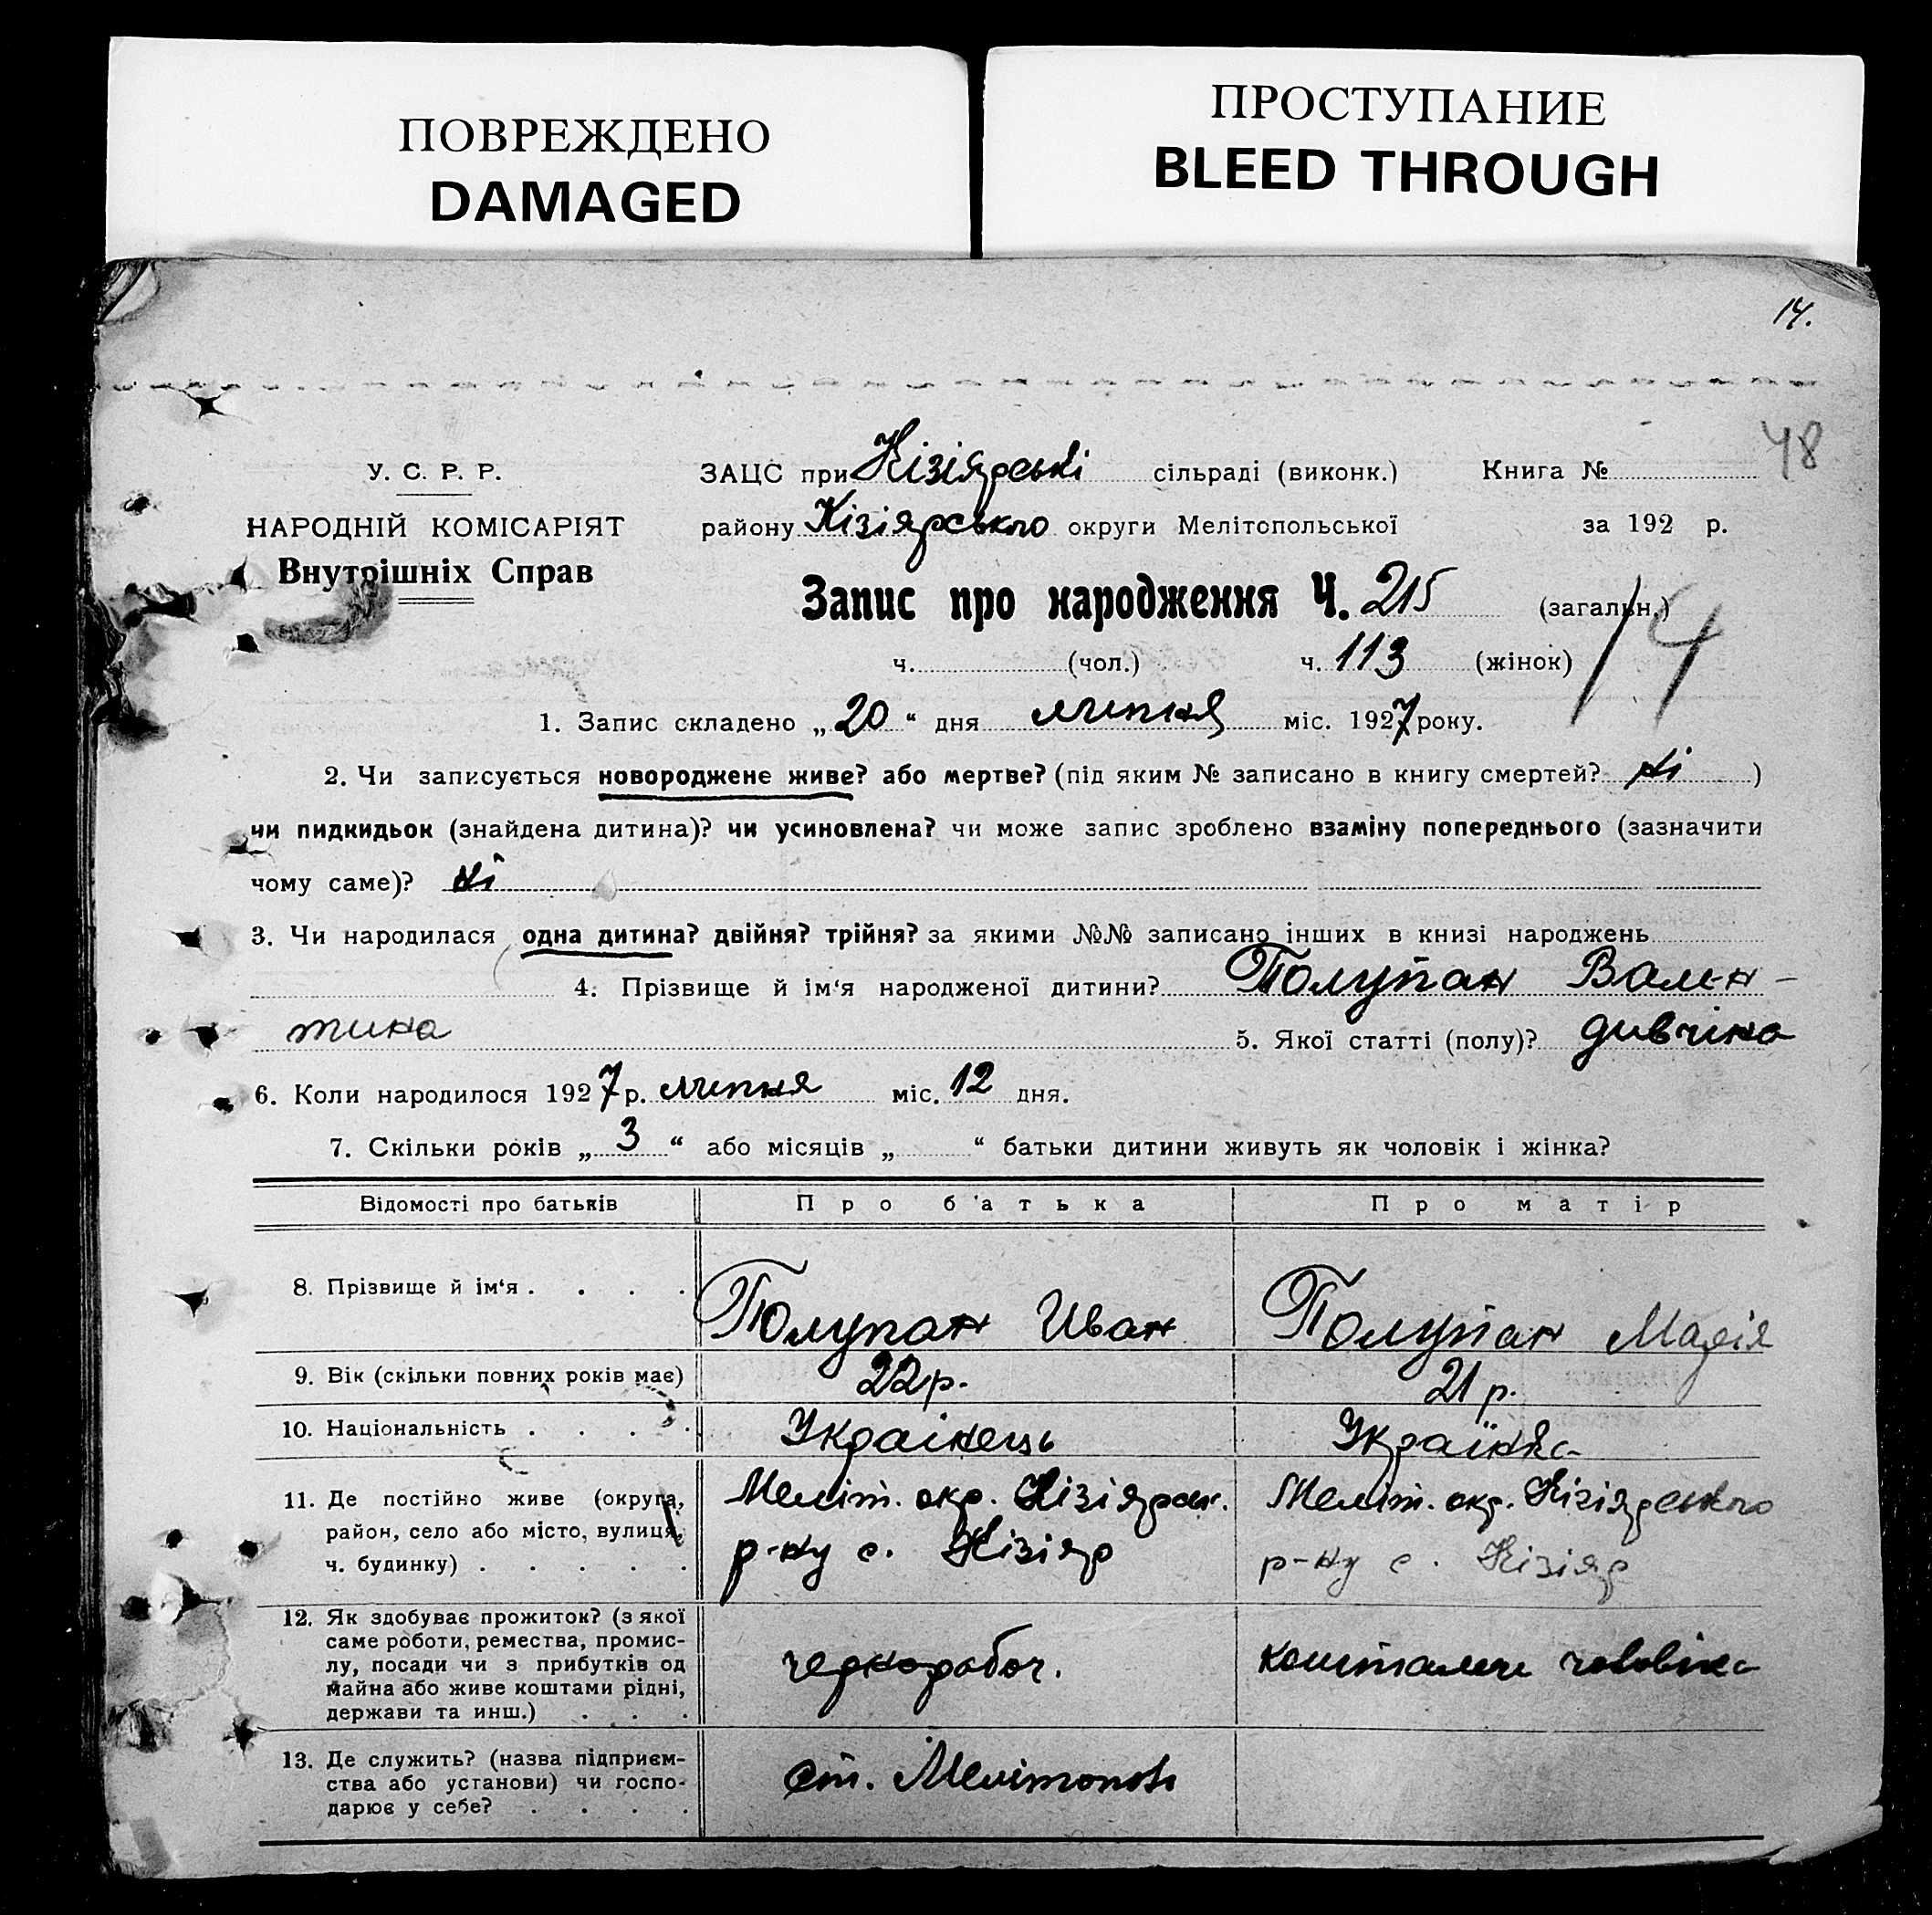 ПОВРЕЖДЕНО
DAMAGED
ПРОСТУПАНИЕ
BLEED THROUGH
14.
48
У. С. Р. Р.
НАРОДНІЙ КОМІСАРІЯТ
Внутрішніх Справ
ЗАЦС при Кізіярські сільраді (виконк.) Книга №
району Кізіярського округи Мелітопольської за 192 р.
Запис про народження Ч. 215 (загальн.)
14
ч. (чол.) ч. 113 (жінок)
1. Запис складено „ 20 “ дня липня міс. 1927 року.
2. Чи записується новороджене живе? або мертве? (під яким № записано в книгу смертей? ні )
чи пидкидьок (знайдена дитина)? чи усиновлена? чи може запис зроблено взаміну попереднього (зазначити
чому саме)? ні
3. Чи народилася одна дитина? двійня? трійня? за якими №№ записано інших в книзі народжень
4. Прізвище й ім‘я народженої дитини? Полупан Вален-
тина 5. Якої статті (полу)? дивчіна
6. Коли народилося 1927 р. липня міс. 12 дня.
7. Скільки років „ 3 “ або місяців „ “ батьки дитини живуть як чоловік і жінка?
Відомості про батьків Про батька Про матір
8. Прізвище й ім‘я . . . . Полупан Иван Полупан Марія
9. Вік (скільки повних років має) 22 р. 21 р.
10. Національність . . . . Украінець Украінка
11. Де постійно живе (округа,
район, село або місто, вулиця,
ч. будинку) . . . . .
Меліт. окр. Кізіярськ.
р-ну с. Кізіяр
Меліт. окр. Кізіярського
р-ну с. Кізіяр
12. Як здобуває прожиток? (з якої
саме роботи, ремества, промис-
лу, посади чи з прибутків од
майна або живе коштами рідні,
держави та инш.) . . .
чернорабоч.
коштами чоловіка
13. Де служить? (назва підприєм-
ства або установи) чи госпо-
дарює у себе? . . . .
ст. Мелітополь